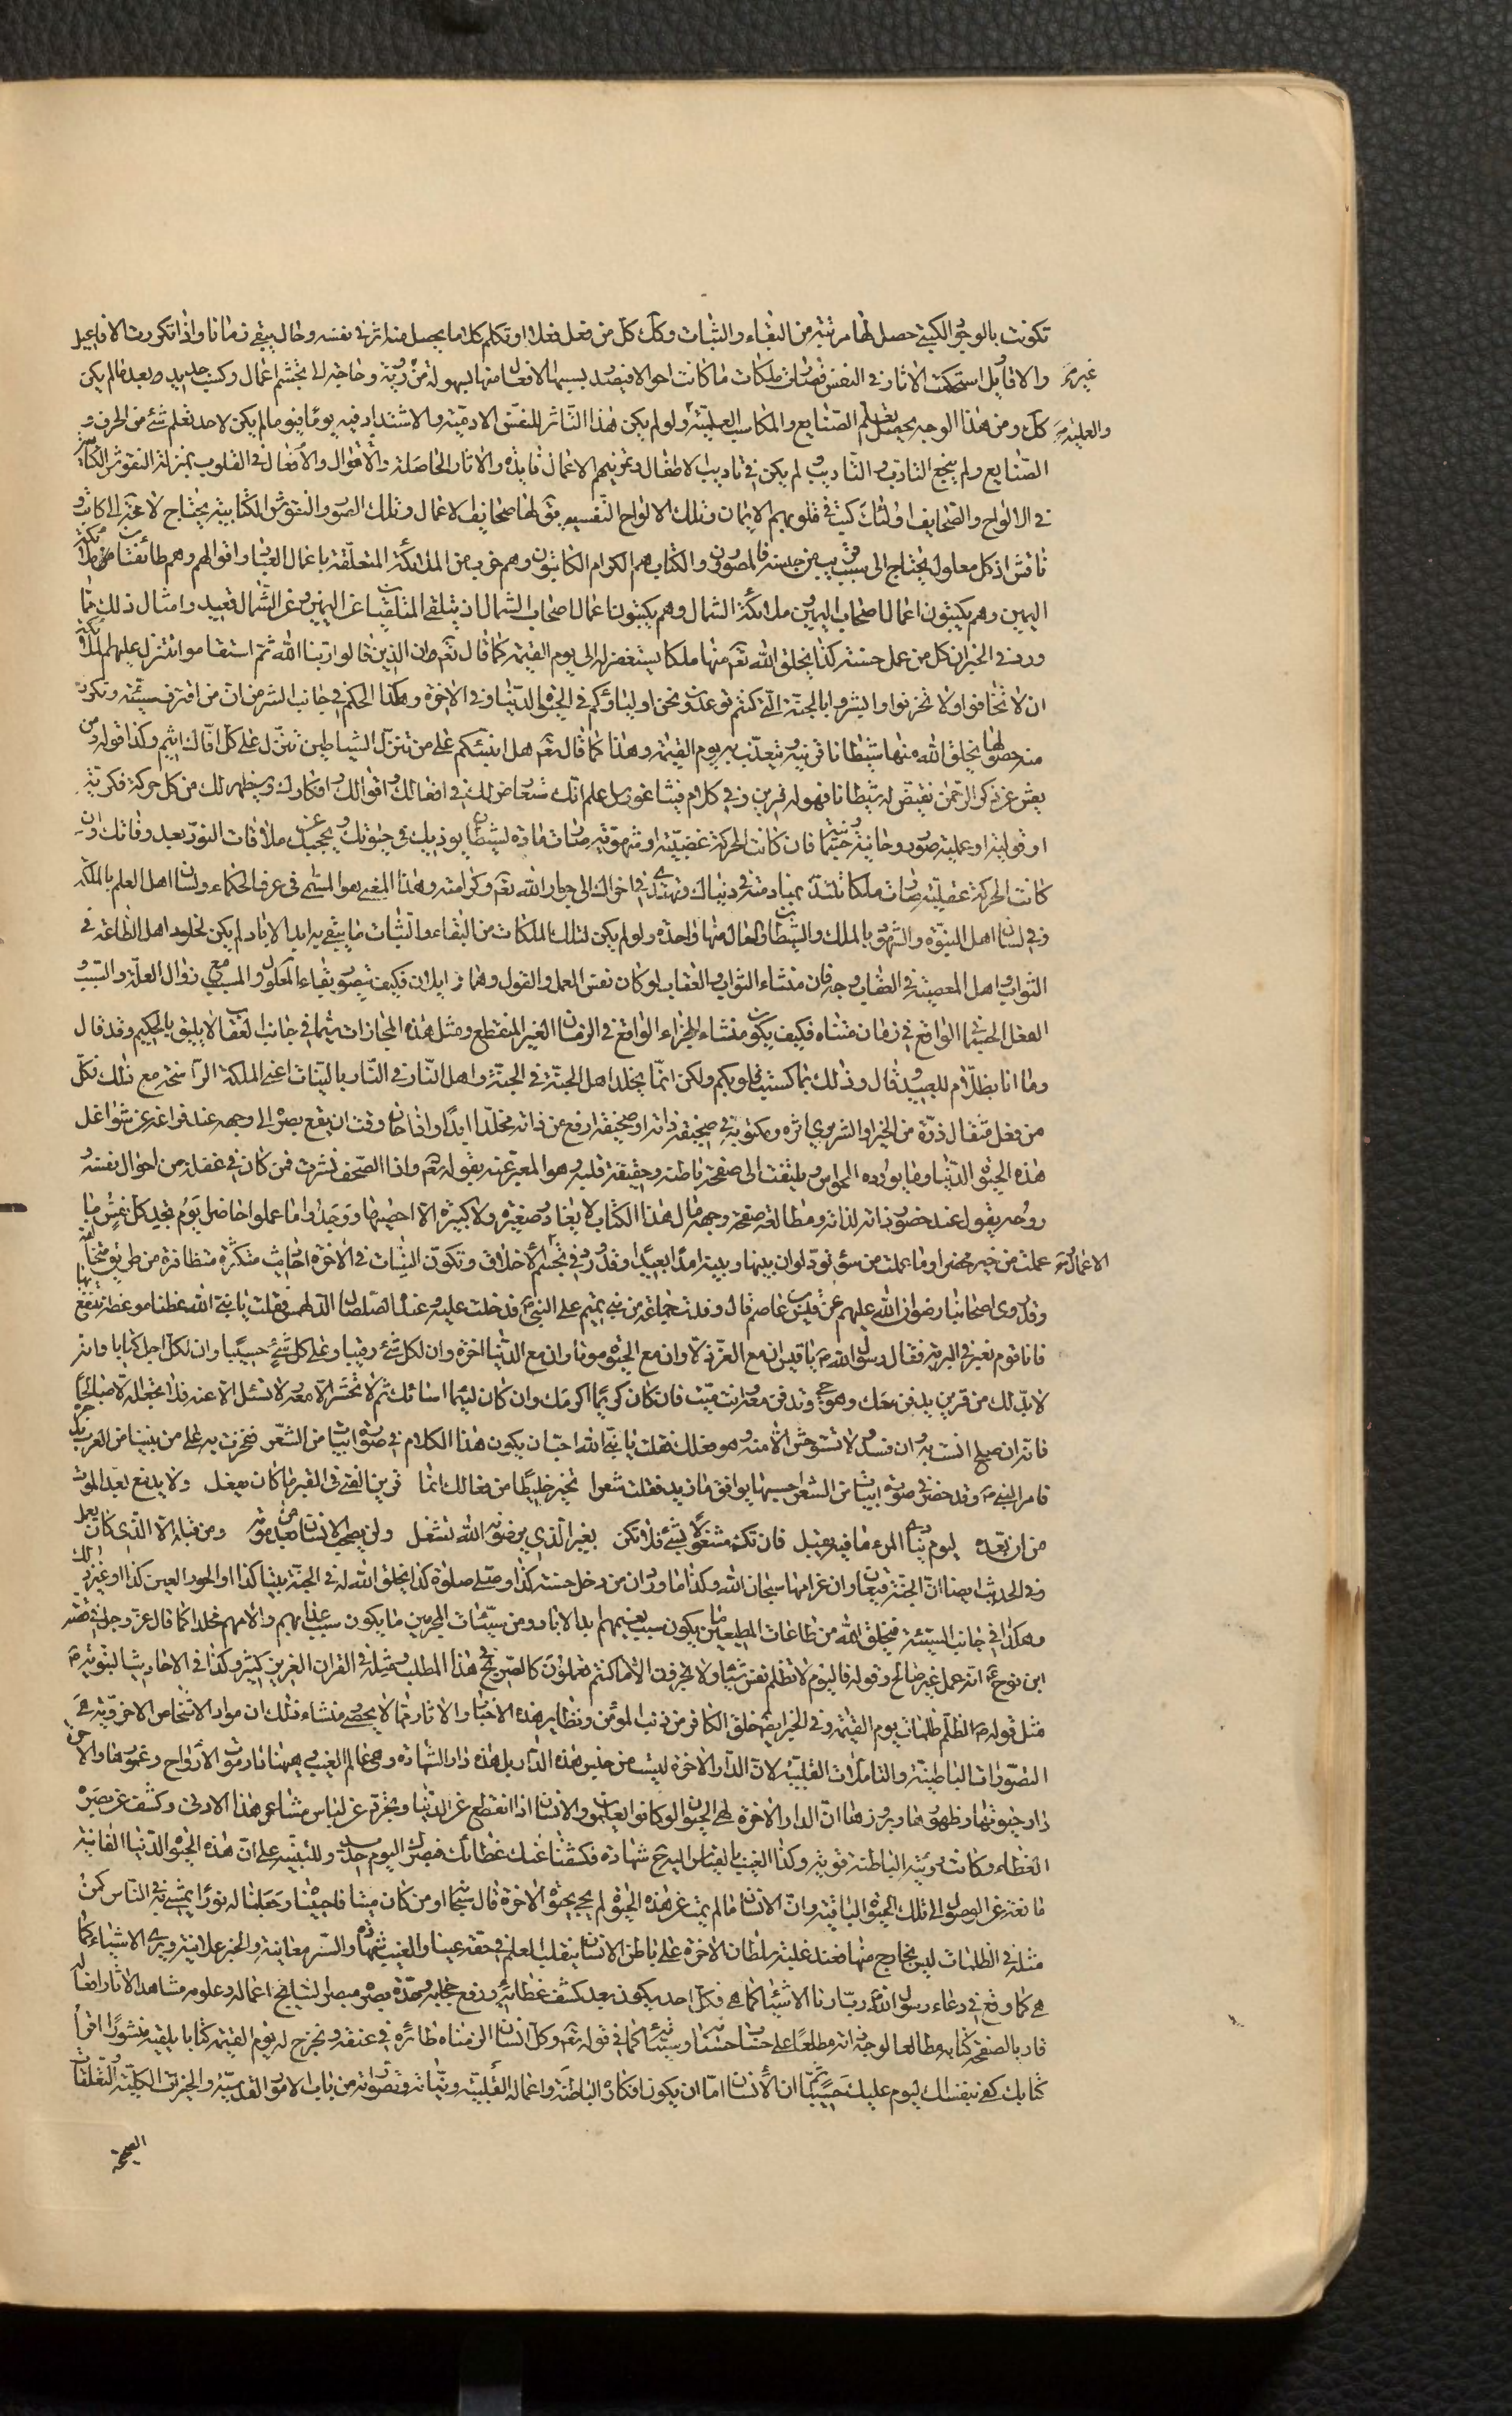 تكونت بالوجود الكتبى حصل لها مرتبة من البقاء والثبات وكك كل من فعل فعلا او تكلم كلاما يحصل منه اثر فى نفسه وحال يبقى زمانا واذا تكررت الافاعيل
والاقاويل استحكمت الاثار فى النفس فصارت ملكات ما كانت احوالا فيصدر بسببها الافعال منها بسهولة من غير روية وحاجة الى تجشم اعمال وكسب جديد بعد ما لم يكن
كك ومن هذا الوجه يحصل تعلم الصنايع والمكاسب العلمية والعملية ولو لم يكن هذا التاثر للنفس الادمية والاشتداد فيه يوما فيوما لم يكن لاحد تعلم شئ من الحرف و
الصنايع ولم ينجع التاديب و لم يكن فى تاديب الاطفال وتمرينهم الاعمال فايدة والاثار الحاصلة من الاقوال والافعال فى القلوب بمنزلة النقوش الكتابية
فى الالواح والصحايف اولئك كتب فى قلوبهم الايمان وتلك الالواح النفسية يقال لها صحائف الاعمال وتلك الصور والنقوش الكتابية يحتاج لا محة الى كاتب
ناقش اذ كل معلول يحتاج الى سبب قريب من جنسه فالمصورون والكتاب هم الكرام الكاتبون وهم ضرب من الملائكة المتعلقة باعمال العباد واقوالهم وهم طائفتان ملائكة
اليمين وهم يكتبون اعمال اصحاب اليمين وملائكة الشمال وهم يكتبون اعمال اصحاب الشمال اذ يتلقى المتلقيان عن اليمين وعن الشمال قعيد وامثال ذلك مما
ورد فى الخبر ان كل من عمل حسنة كذا يخلق الله تعم منها ملكا يستغفر له الى يوم القيمة كما قال تعم ان الذين قالوا ربنا الله ثم استقاموا تتنزل عليهم الملائكة
ان لا تخافوا ولا تحزنوا وابشروا بالجنة التى كنتم توعدون نحن اولياؤكم فى الحيوة الدنيا وفى الاخرة وهكذا الحكم فى جانب الشر من ان من اقترف سيئة وتكون
منه خطيئة يخلق الله منها شيطانا قرينه يتعذب به يوم القيمة وهذا كما قال تعم هل انبئكم على من تنزل الشياطين تنزل على كل افاك اثيم وكذا قوله ومن
يعش عن ذكر الرحمن نقيض له شيطانا فهو له قرين وفى كلام فيثاغورس اعلم انك ستعارض لك فى افعالك و اقوالك و افكارك وسيظهر لك من كل حركة فكرية
او قولية او عملية صور روحانية وجسمانية فان كانت الحركة غضبية او شهوية صارت مادة لشيطان يوذيك فى حيوتك و يحجبك عن ملاقات النور بعد وفاتك وان
كانت الحركة عقلية صارت ملكا تلتذ بمنادمته فى دنياك وتهتدى به فى اخراك الى جوار الله تعم وكرامته وهذا المعنى هو المسمى فى عرف الحكماء ولسان اهل العلم بالملكة
وفى لسان اهل النبوة والشهود بالملك والشيطان والمال منها واحدة ولو لم يكن لتلك الملكات من البقاء والثبات ما يبقى به ابد الاباد لم يكن لخلود اهل الطاعة فى
الثواب و اهل المعصية فى العقاب وجه فان منشاء الثواب و العقاب لو كان نفس العمل والقول وهما زايلان فكيف يتصور بقاء المعلول والمسبب مع زوال العلة والسبب و
الفعل الجسمانى الواقع فى زمان متناه فكيف يكون منشاء للجزاء الواقع فى الزمان الغير المنقطع ومثل هذه المجازات سيما فى جانب العقاب لا يليق بالحكيم وقد قال
وما انا بظلام للعبيد وقال وذلك بما كسبت قلوبكم ولكن انما يخلد اهل الجنة فى الجنة و اهل النار فى النار بالنيات اعنى الملكة الراسخة مع ذلك فكل
من فعل مثقال ذرة من الخير او الشر يرى اثره ومكتوبه فى صحيفة ذاته او صحيفة ارفع من ذاته مخلدا ابدا واذا حان وقت ان يقع بصره الى وجهه عند فراغه عن شواغل
هذه الحيوة الدنيا وما يورده الحواس و يلتفت الى صفحة باطنه وحقيقة قلبه وهو المعبر عنه بقوله تعم واذا الصحف نشرت فمن كان فى غفلة من احوال نفسه و
روحه يقول عند حضور ذاته لذاته ومطالعة صفحة وجهه ما لهذا الكتاب لا يغادر صغيرة ولا كبيرة الا احصيها ووجدوا ما عملوا حاضرا يوم تجد كل نفس ما
عملت من خير محضرا وما عملت من سوء تود لو ان بينها وبينه امدا بعيدا وقد ورد فى تجسم الاعمال و الاخلاق وتكون النيات فى الاخرة احاديث متكثرة متظافرة من طريق مخالفينا
وقد روى اصحابنا رضوان الله عليهم عن قيس بن عاصم قال وفدت مع جماعة من بنى تميم على النبى ص فدخلت عليه وعنده الصلصال الدلهمس فقلت يا نبى الله عظنا موعظة ننتفع بها
فانا قوم نعبر فى البرية فقال رسول الله ص يا قيس ان مع العز ذلا وان مع الحيوة موتا وان مع الدنيا اخرة وان لكل شئ رقيبا وعلى كل شئ حسيبا وان لكل اجل كتابا وانه
لا بد لك من قرين يدفن معك وهو حى وتدفن معه وانت ميت فان كان كريما اكرمك وان كان لئيما اسائك ثم لا تحشر الا معه ولا تسئل الا عنه فلا تجعله الا صالحا
فانه ان صلح انست به و ان فسد لا تستوحش الا منه و هو فعلك فقلت يا نبى الله احب ان يكون هذا الكلام فى صورة ابيات من الشعر نفخر به على من يلينا من العرب وندخره
فامر النبى ص وقد حضر فى صورة ابيات من الشعر احسبها يوافق ما نريد فقلت شعرا تخير خليطا من فعالك انما قرين الفتى فى القبر ما كان يفعل ولا بد بعد الموت
من ان تعده ليوم ينادى المرء فيه فيقبل فان تك مشغولا بشئ فلا تكن بغير الذى يرضى به الله تشغل ولن يصحب الانسان من بعد موته ومن قبله الا الذى كان يعمل
وفى الحديث ايضا ان الجنة قيعان وان غراسها سبحان الله وكذا ما ورد ان من دخل حسنة كذا وصلى صلوة كذا يخلق الله له فى الجنة بيتا كذا او الحور العين كذا او غير ذلك
وهكذا فى جانب السيئة فيخلق الله من طاعات المطيعين ما يكون سبب نعيمهم ابد الاباد ومن سيئات المجرمين ما يكون سبب عذابهم والامهم مخلدا كما قال عز وجل فى قصة
ابن نوح ع انه عمل غير صالح وقوله فاليوم لا تظلم نفس شيئا ولا تجزون الا ما كنتم تعملون كالصريح فى هذا المطلب و مثله فى القران العزيز كثير وكذا فى الاحاديث النبوية ص
مثل قوله ص الظلم ظلمات يوم القيمة وفى الخبر ايضا خلق الكافر من ذنب المؤمن ونظاير هذه الاخبار والاثار مما لا يحصى منشاء ذلك ان مواد الاشخاص الاخروية هى
التصورات الباطنية والتاملات القلبية لان الدار الاخرة ليست من جنس هذه الدار بل هذه دار الشهادة وهى عالم الغيب
دار حيوتها وظهورها وبروزها ان الدار الاخرة لهى الحيوان لو كانوا يعلمون والانسان اذا انقطع عن الدنيا وتجرد عن لباس مشاعر هذا الادنى وكشف عن بصره
الغطاء وكانت قوته الباطنة قوية وكذا الغيب بالقياس اليه ح شهادة فكشفنا عنك غطائك فبصرك اليوم حديد وللتنبيه على ان هذه الحيوة الدنيا الفانية
مانعة عن الوصول الى تلك الحيوة الباقية وان الانسان ما لم يمت عن هذه الحيوة لم يحى بحيوة الاخرة قال سبحانه او من كان ميتا فاحييناه وجعلنا له نورا يمشى به فى الناس كمن
مثله فى الظلمات ليس بخارج منها فعند غلبة سلطان الاخرة على باطن الانسان ينقلب العلم فى حقه عينا والغيب شهادة والسر معاينة والخبر علانية ويرى الاشياء كما
هى كما وقع فى دعاء رسول الله ص رب ارنا الاشياء كما هى فكل احد يكون بعد كشف غطائه ورفع حجابه و حدة بصره مبصرا لنتايج اعماله وعلومه مشاهدا لاثار افعاله
قاريا لصفحة كتابه مطالعا لوجه ذاته مطلعا على حساب حسناته وسيئاته كما فى قوله تعم وكل انسان الزمناه طائره فى عنقه ونخرج له يوم القيمة كتابا يلقيه منشورا اقرأ
كتابك كفى بنفسك اليوم عليك حسيبا ثم ان الانسان اما ان يكون افكاره الباطنة واعماله القلبية ونياته وتصوراته من باب الامور القدسية والخيرات الكلية و التعلقات
الصحيحة